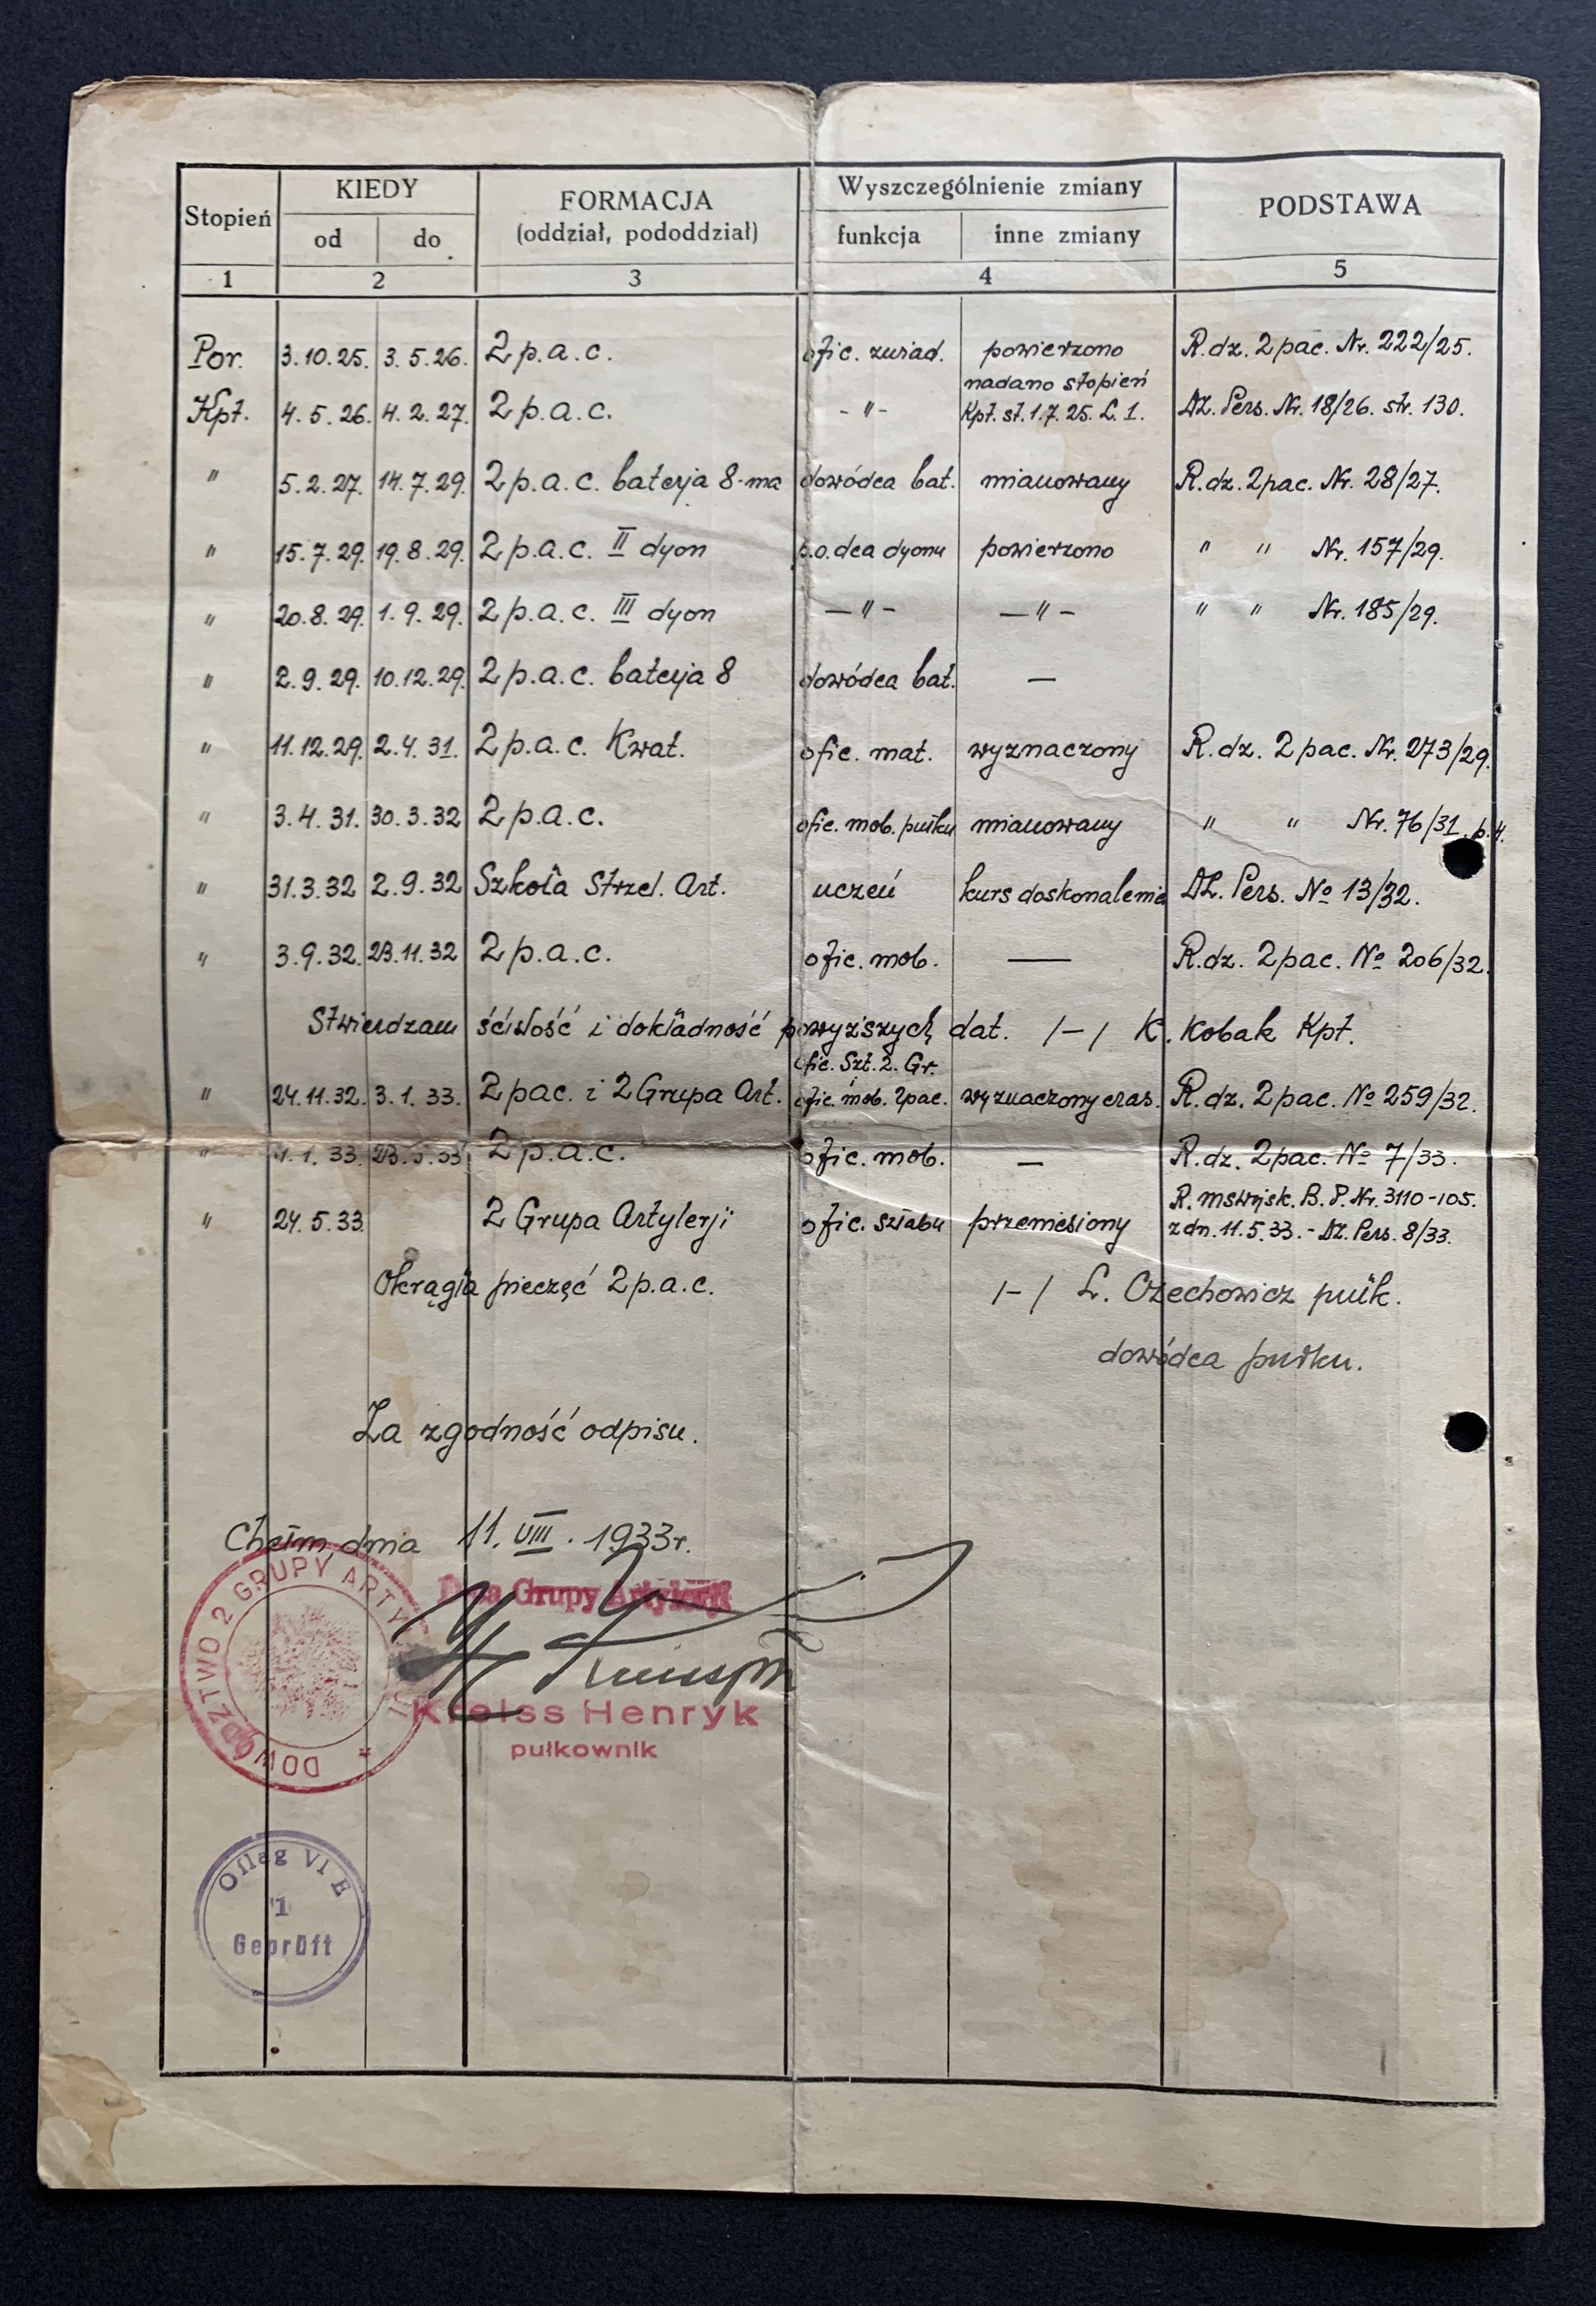 Stopień KIEDY FORMACJA Wyszczególnienie zmiany PODSTAWA
od do (oddział, pododdział) funkcja inne zmiany
1 2 3 4 5
Por. 3.10.25. 3.5.26. 2 p.a.c. ofic. zwiad. powierzono R.dz. 2 pac. Nr. 222/25.
nadano stopień
Kpt. 4.5.26. 4.2.27. 2 p.a.c. -"- Kpt. st. 1.7.25. L. 1. Dz. Pers. Nr. 18/26. str. 130.
" 5.2.27. 14.7.29. 2 p.a.c. baterja 8-ma dowódca bat. mianowany R.dz. 2 pac. Nr. 28/27.
" 15.7.29. 19.8.29. 2 p.a.c. II dyon p.o. dca dyonu powierzono " " Nr. 157/29.
" 20.8.29. 1.9.29. 2 p.a.c. III dyon -"- -"- " " Nr. 185/29.
" 2.9.29. 10.12.29. 2 p.a.c. baterja 8 dowódca bat. —
" 11.12.29. 2.4.31. 2 p.a.c. Kwat. ofic. mat. wyznaczony R.dz. 2 pac. Nr. 273/29.
" 3.4.31. 30.3.32 2 p.a.c. ofic. mob. pułku mianowany " " Nr. 76/31. p.4.
" 31.3.32 2.9.32 Szkoła Strzel. Art. uczeń kurs doskonalenia Dz. Pers. No 13/32.
" 3.9.32. 23.11.32 2 p.a.c. ofic. mob. — R.dz. 2 pac. No 206/32.
Stwierdzam ścisłość i dokładność powyższych dat. /-/ K. Kobak Kpt.
ofic. Szt. 2. Gr.
" 24.11.32. 3.1.33. 2 pac. i 2 Grupa Art. i ofic. mob. 2 pac. wyznaczony czas. R.dz. 2 pac. No 259/32.
" 4.1.33. 23.5.33 2 p.a.c. ofic. mob. — R.dz. 2 pac. No 7/33.
R. mswojsk. B.P. Nr. 3110-105.
" 24.5.33 2 Grupa Artylerji ofic. sztabu przeniesiony z dn. 11.5.33. - Dz. Pers. 8/33.
Okrągła pieczęć 2 p.a.c. /-/ L. Czechowicz płk.
dowódca pułku.
Za zgodność odpisu.
Chełm, dnia 11. VIII. 1933 r.
DOWÓDZTWO 2 GRUPY ARTYLERJI
Dca Grupy Artylerji
Kreiss Henryk
pułkownik
Oflag VI E
1
Geprüft